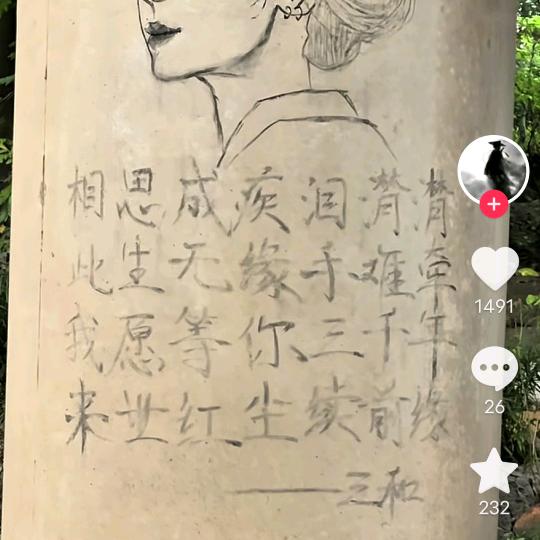 相思成疾泪潸潸
此生无缘手难牵
我愿等你三千年
来世红尘续前缘
——三和
1491
26
232